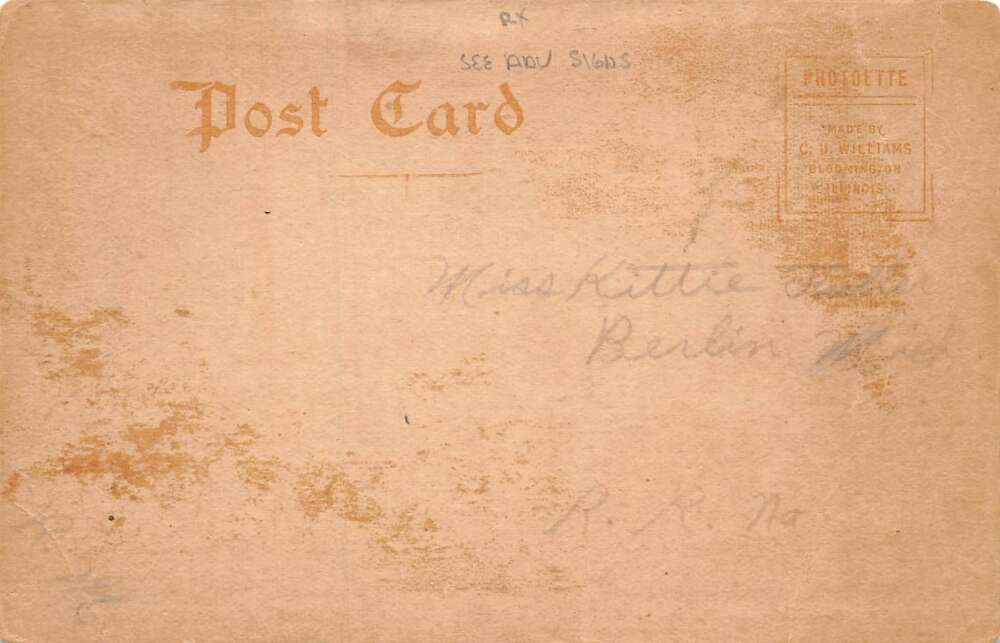 RX
SEE ADV SIGNS
Post Card
PHOTOLETTE
MADE BY
C. U. WILLIAMS
BLOOMINGTON
ILLINOIS
Miss Kittie
Berlin
R. R. No